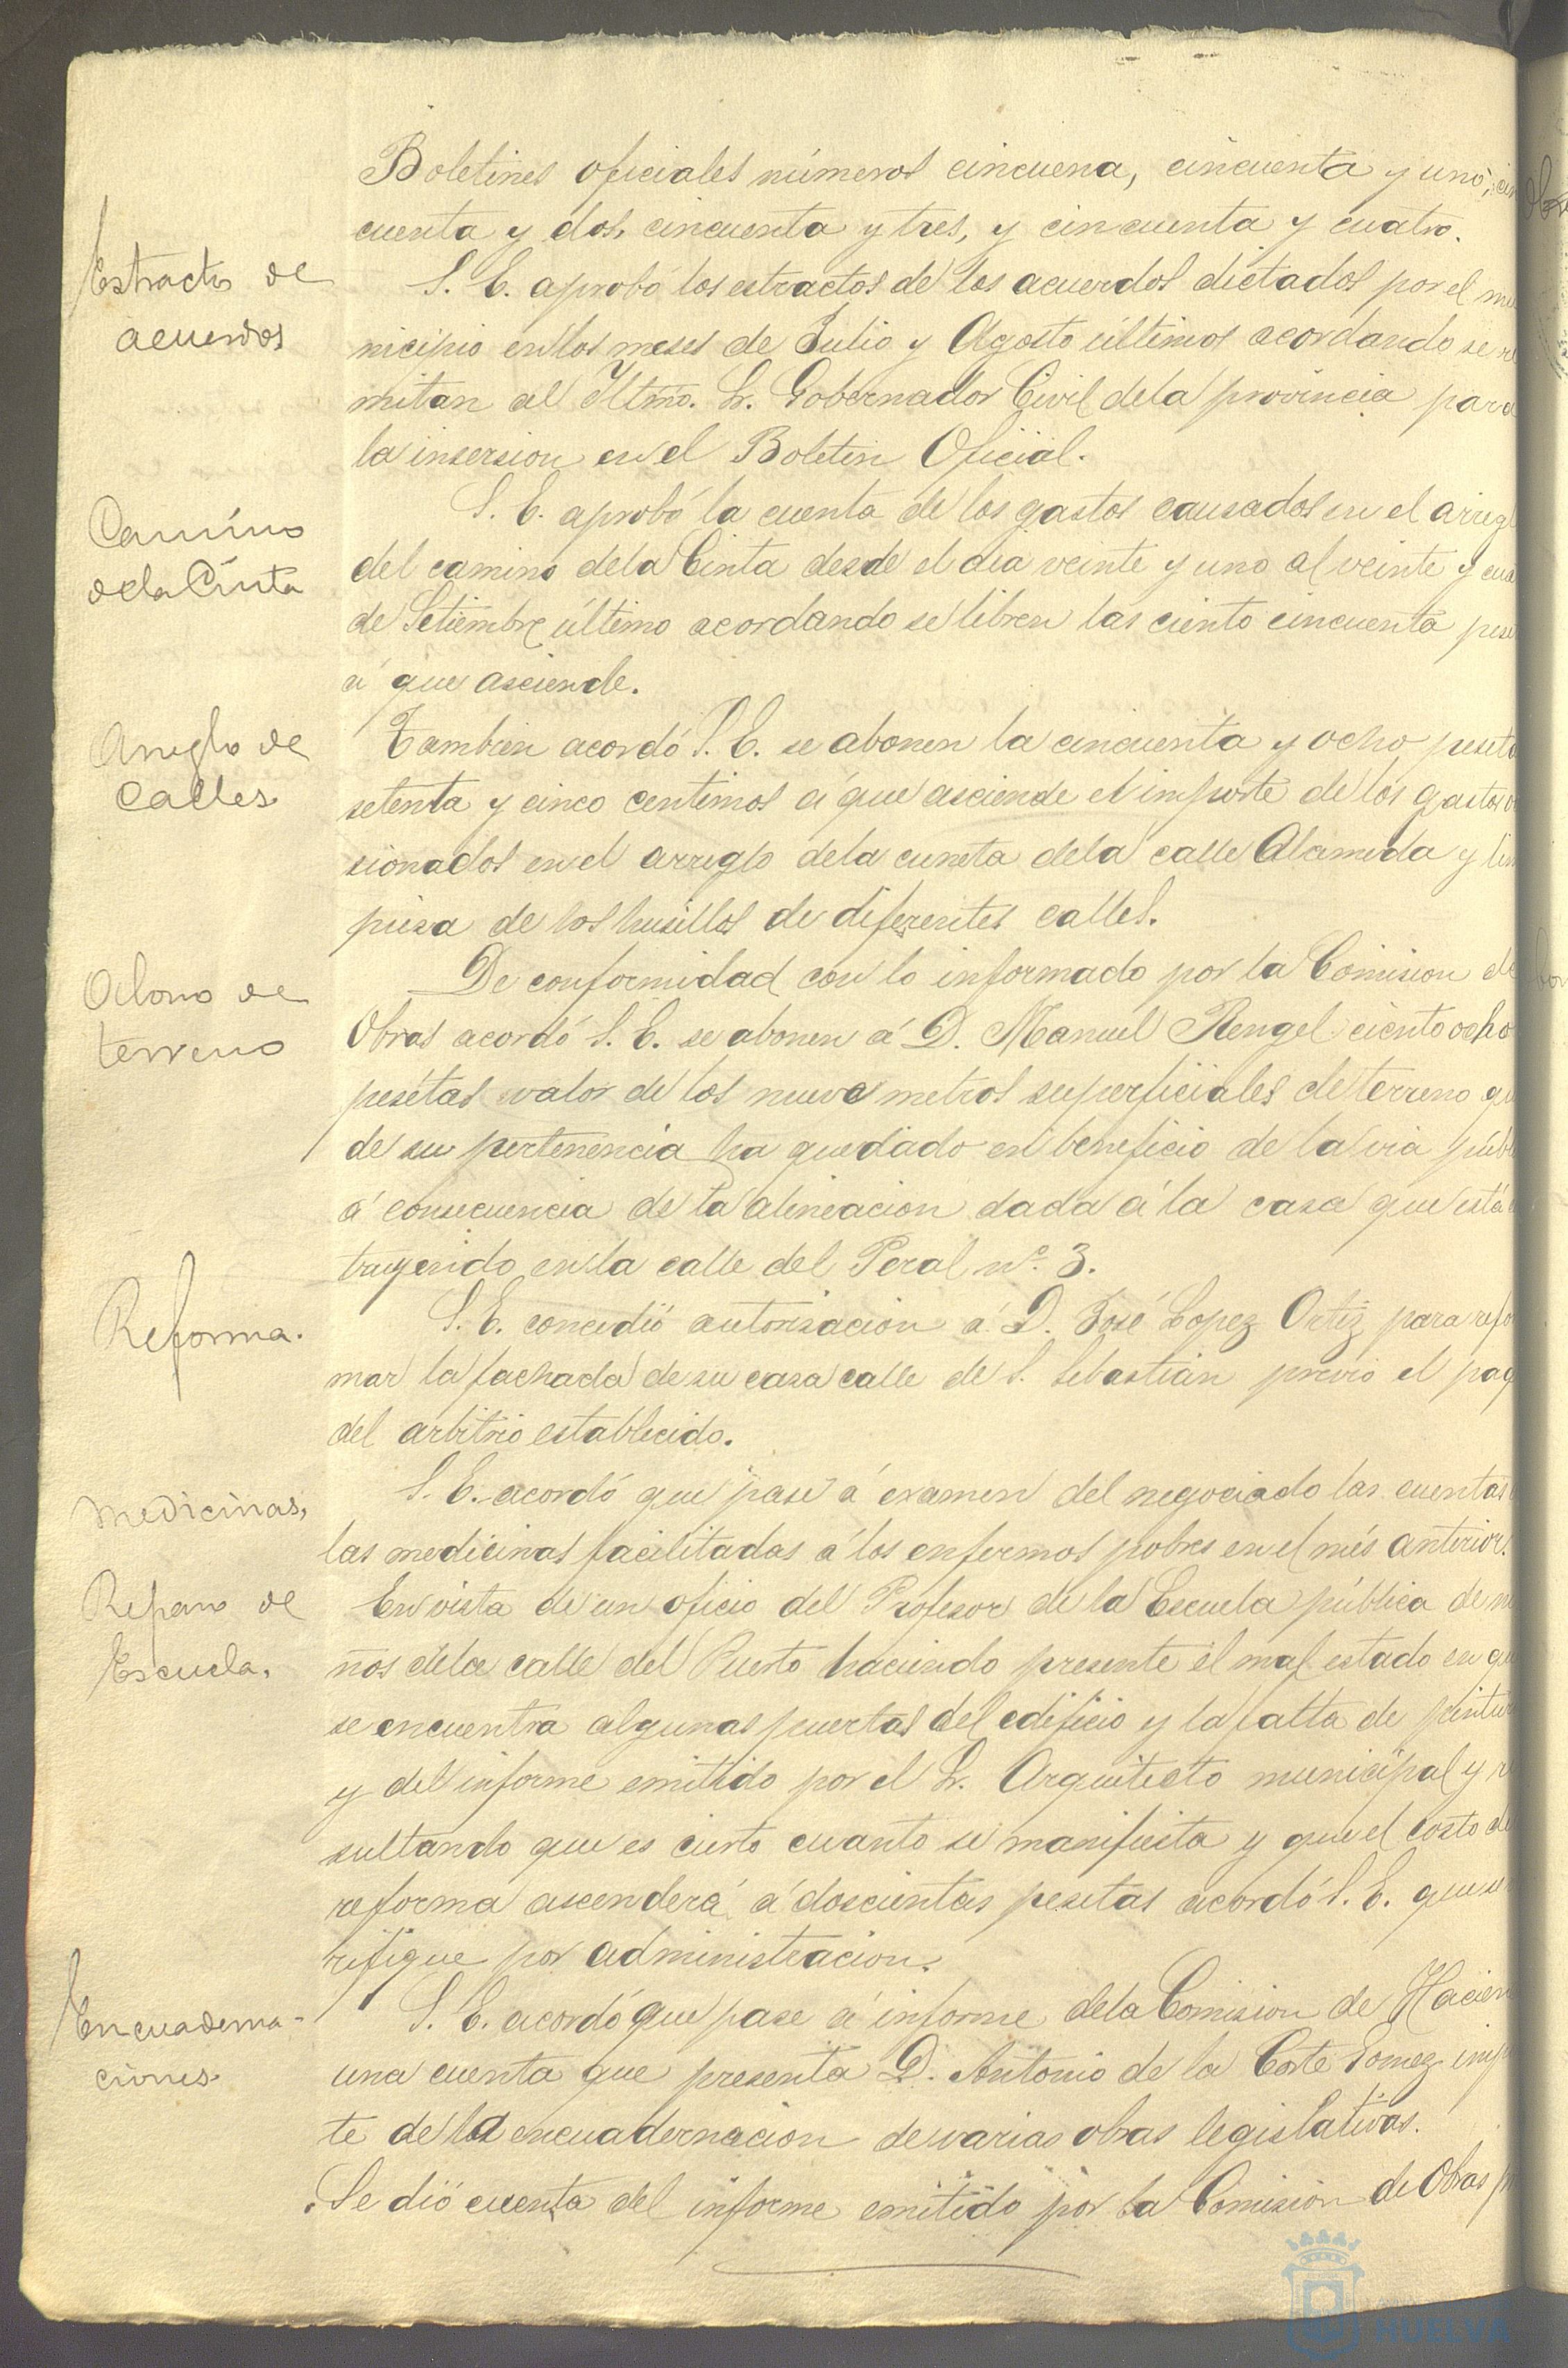 Boletines oficiales números cincuena, cincuenta y uno, cin
cuenta y dos, cincuenta y tres, y cincuenta y cuatro.
Estracto de
acuerdos
S. E. aprobó los estractos de los acuerdos dictados por el mu
nicipio en los meses de Julio y Agosto últimos acordando se re
mitan al Iltmo. Sr. Gobernador Civil de la provincia para
la insersion en el Boletin Oficial.
Camino
de la Cinta
S. E. aprobó la cuenta de los gastos causados en el arregl
del camino de la Cinta desde el dia veinte y uno al veinte y cua
de Setiembre último acordando se libren las ciento cincuenta pese
á que asciende.
Arreglo de
Calles
Tambien acordó S. E. se abonen la cincuenta y ocho peseta
setenta y cinco centimos á que asciende el importe de los gastos o
sionados en el arreglo de la cuneta de la calle Alameda y lim
pieza de los husillos de diferentes calles.
Abono de
terreno
De conformidad con lo informado por la Comision de
Obras acordó S. E. se abonen á D. Manuel Rengel ciento ocho
pesetas valor de los nueve metros superficiales de terreno qu
de su pertenencia ha quedado en beneficio de la via públ
á consecuencia de la alineacion dada á la casa que está
truyendo en la calle del Peral nº. 3.
Reforma.
S. E. concedió autorisacion á D. José Lopez Ortiz para refo
mar la fachada de su casa calle de S. Sebastian previo el pag
del arbitrio establecido.
Medicinas,
S. E. acordó que pase á examen del negociado las cuentas
las medicinas facilitadas á los enfermos pobres en el més anterior.
Reparo de
Escuela,
En vista de un oficio del Profesor de la Escuela pública de ni
ños de la calle del Puerto haciendo presente el mal estado en qu
se encuentra algunas puertas del edificio y la falta de pintur
y del informe emitido por el Sr. Arquitecto municipal y re
sultando que es cierto cuanto se manifiesta y que el costo de
reforma ascenderá á doscientas pesetas acordó S. E. que se
rifique por administracion.
Encuaderna-
ciones
S. E. acordó que pase á informe de la Comision de Hacien
una cuenta que presenta D. Antonio de la Corte Gomez impo
te de la encuadernacion de varias obras legislativas.
Se dió cuenta del informe emitido por la Comision de Obras
HUELVA